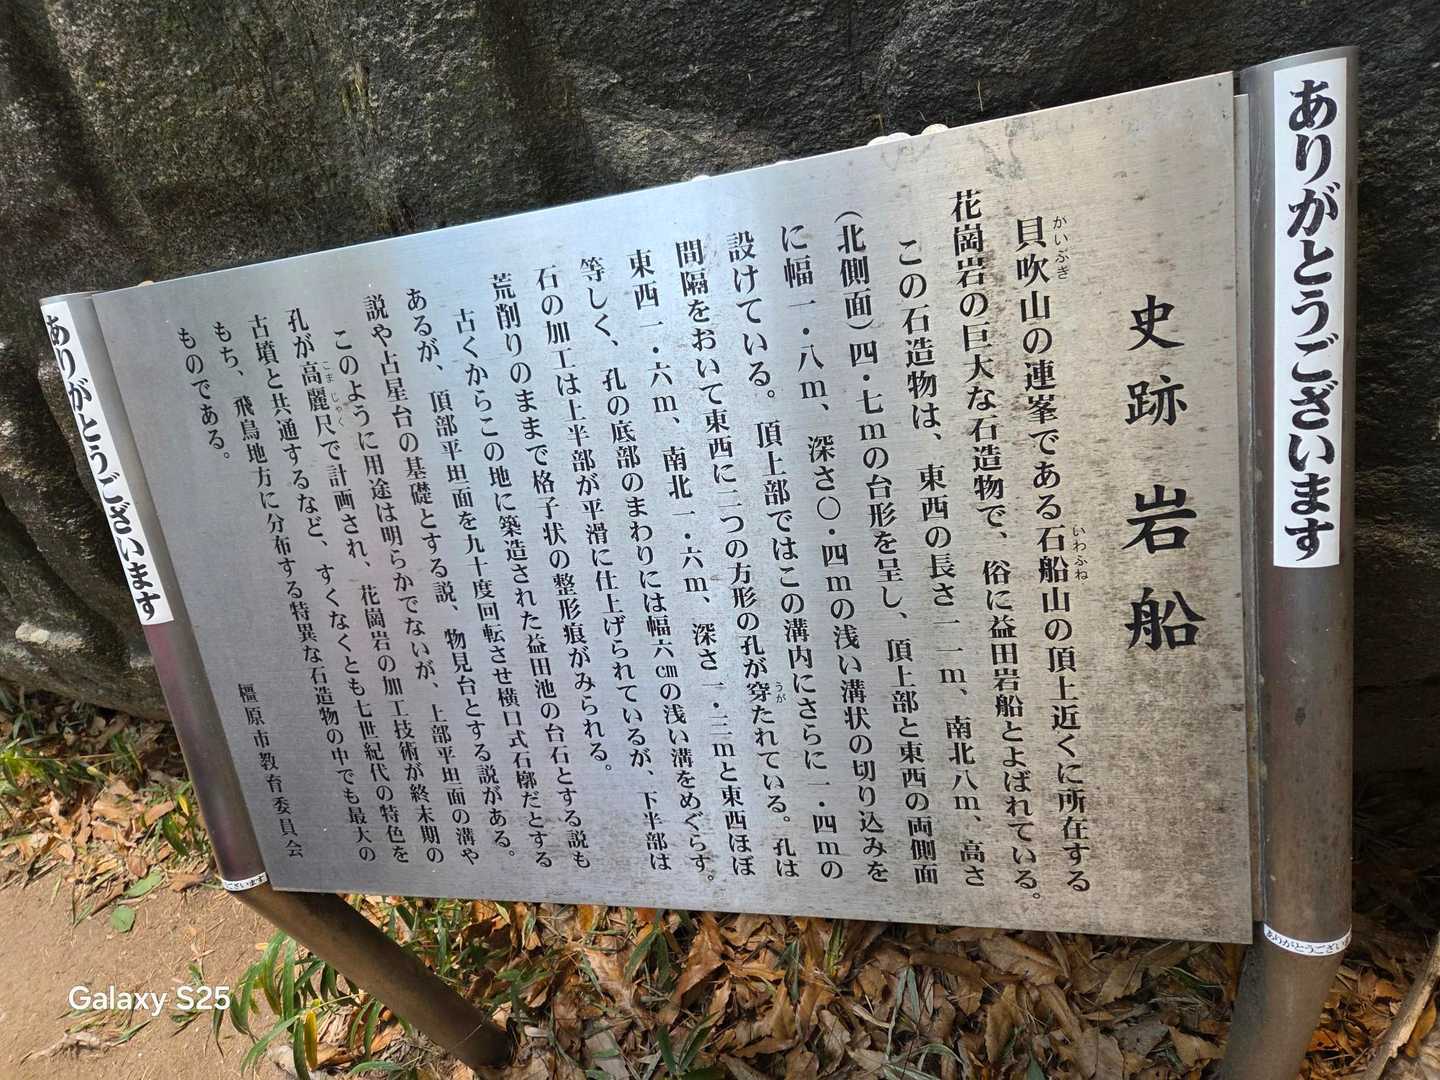 史跡 岩船
貝吹山の連峯である石船山の頂上近くに所在する
がいぶき
いわふね
花崗岩の巨大な石造物で、俗に益田岩船とよばれている。
この石造物は、東西の長さ一一m、南北八m、高さ
(北側面)四・七mの台形を呈し、頂上部と東西の両側面
に幅一・八m、深さ〇・四mの浅い溝状の切り込みを
設けている。頂上部ではこの溝内にさらに一・四mの
間隔をおいて東西に二つの方形の孔が穿たれている。孔は
うが
東西一・六m、南北一・六m、深さ一・三mと東西ほぼ
等しく、孔の底部のまわりには幅六㎝の浅い溝をめぐらす。
石の加工は上半部が平滑に仕上げられているが、下半部は
荒削りのままで格子状の整形痕がみられる。
古くからこの地に築造された益田池の台石とする説も
あるが、頂部平坦面を九十度回転させ横口式石槨だとする
説や占星台の基礎とする説、物見台とする説がある。
このように用途は明らかでないが、上部平坦面の溝や
孔が高麗尺で計画され、花崗岩の加工技術が終末期の
こまじゃく
古墳と共通するなど、すくなくとも七世紀代の特色を
もち、飛鳥地方に分布する特異な石造物の中でも最大の
ものである。
橿原市教育委員会
ありがとうございます
ありがとうございます
ありがとうござい
ございます
Galaxy S25